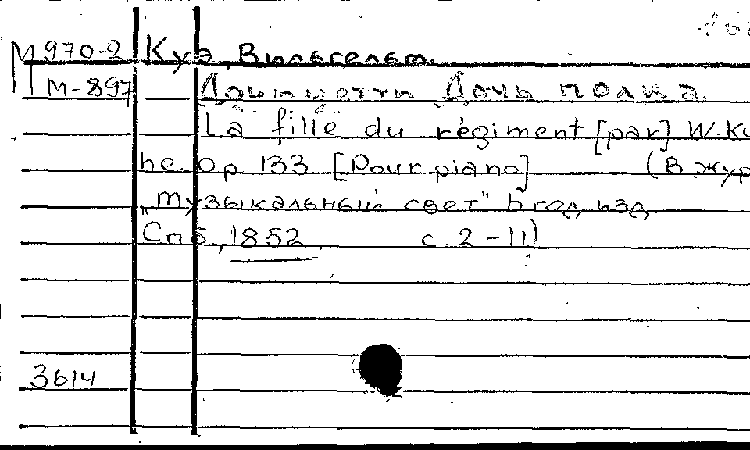 М 970-2 Куэ, Вильгельм.
М-897 Доницетти Дочь полка.
La fille du régiment [par] W. Ku
he. Op 133 [Pour piano] (В жур
„Музыкальный свет" 6 год изд
Спб., 1852 с. 2-11)
3614